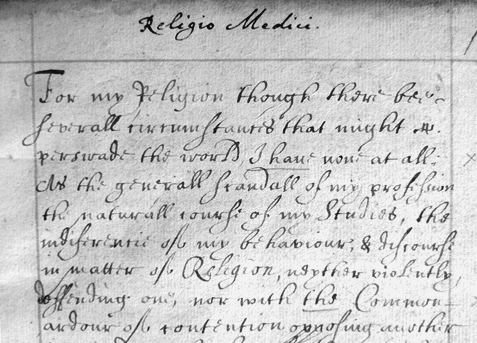 Religio Medici.
For my Religion though there bee
severall circumstances that might
perswade the world I haue none at all.
As the generall scandall of my profession
the naturall course of my Studies, the
indiferencie of my behaviour, & discourse
in matter of Religion, neyther violently
deffending one, nor with the Common
ardour of contention opposing another